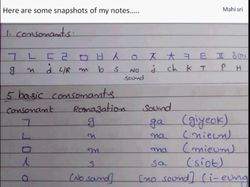 Here are some snapshots of my notes.....
Mahi sri
1. consonants:
ㄱ ㄴ ㄷ ㄹ ㅁ ㅂ ㅅ ㅇ ㅈ ㅊ ㅋ ㅌ ㅍ ㅎ
g n d L/R m b s NO sound j ch K T P H
5 basic consonants
Consonant Romazation Sound
ㄱ g ga (giyeok)
ㄴ n na (nieun)
ㅁ m ma (mieum)
ㅅ s sa (siot)
ㅇ [No sound] [no sound] (i-eung